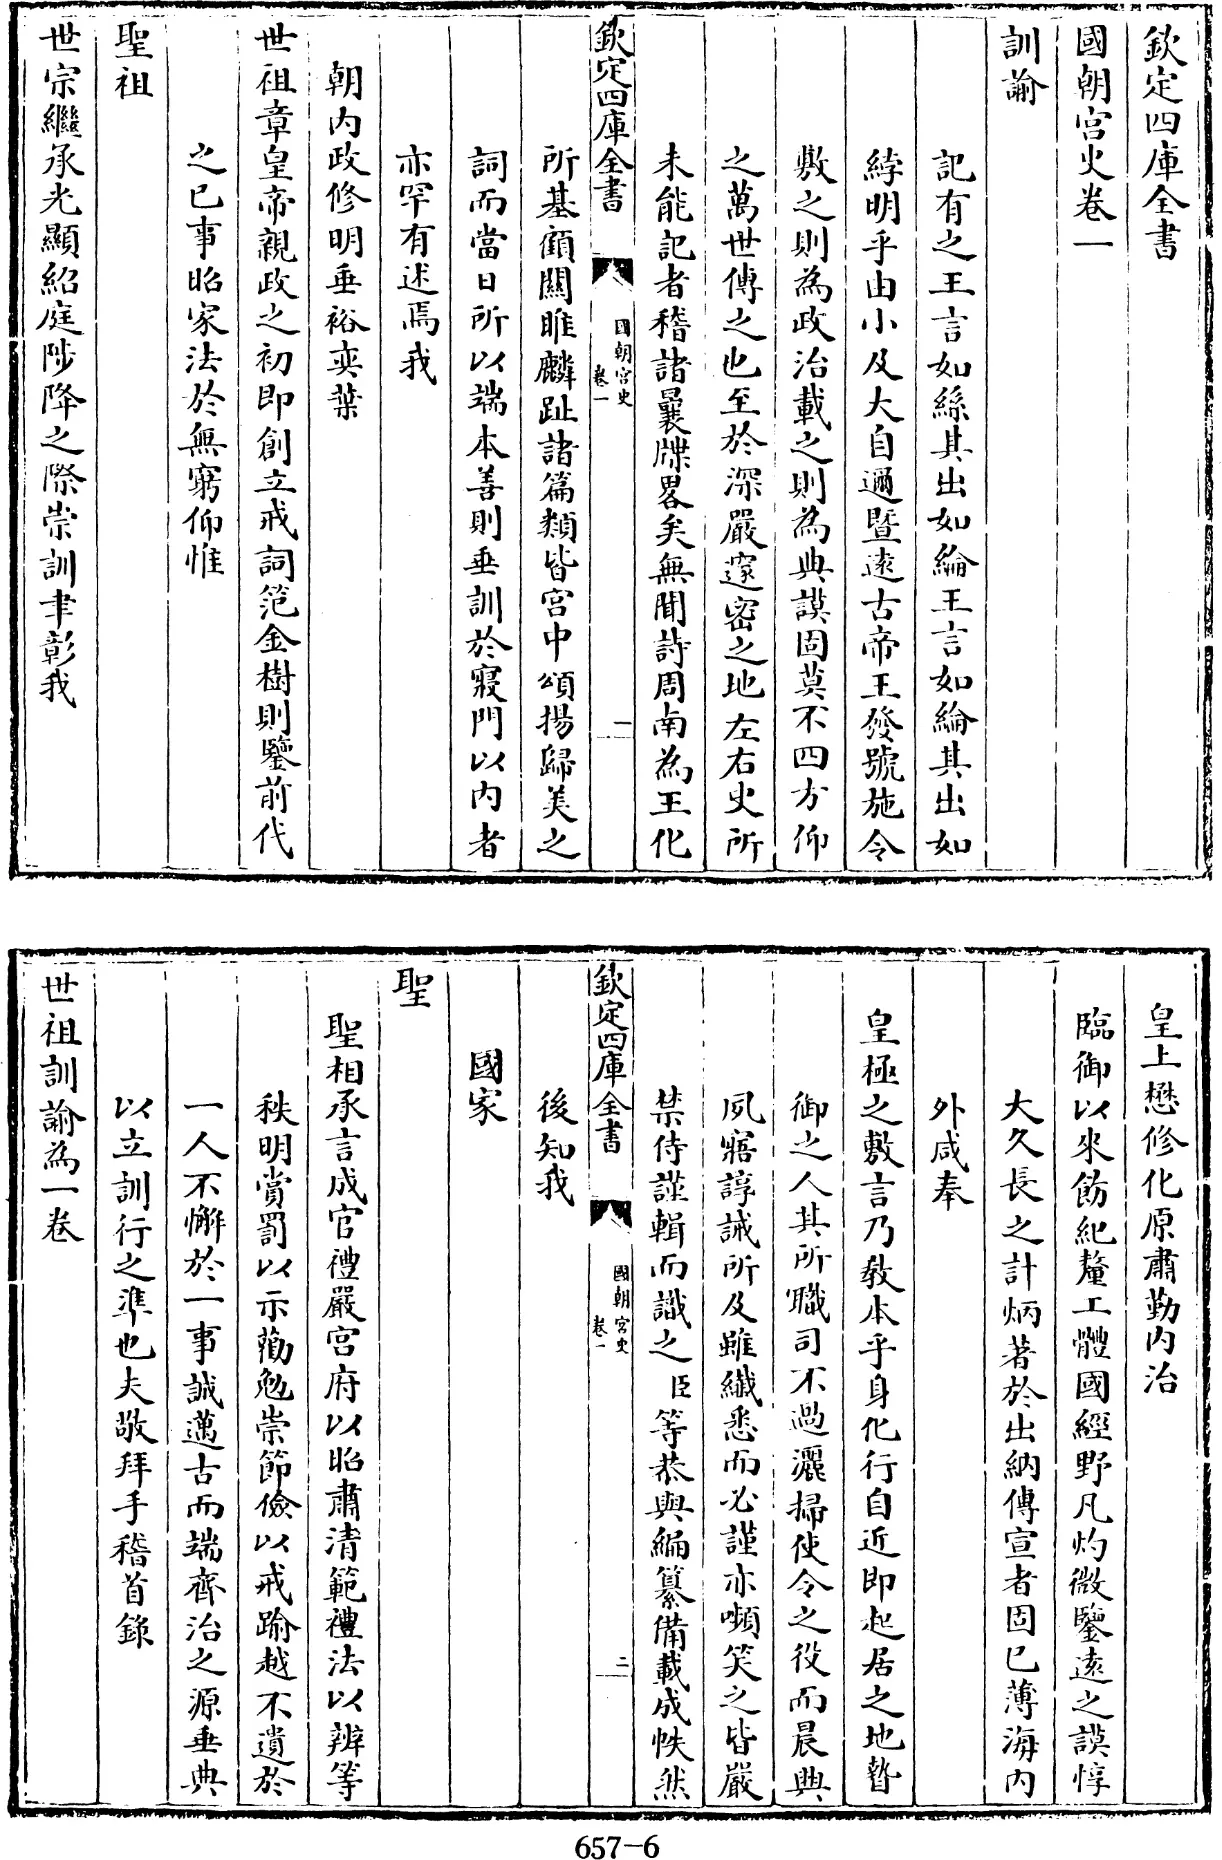 欽定四庫全書
國朝宮史卷一
訓諭
記有之王言如絲其出如綸王言如綸其出如
綍明乎由小及大自邇暨遠古帝王發號施令
敷之則為政治載之則為典謨固莫不四方仰
之萬世傳之也至於深嚴邃密之地左右史所
未能記者稽諸曩牒畧矣無聞詩周南為王化
欽定四庫全書
國朝宮史
卷一
一
所基顧關雎麟趾諸篇類皆宮中頌揚歸美之
詞而當日所以端本善則垂訓於寢門以內者
亦罕有述焉我
朝內政修明垂裕奕葉
世祖章皇帝親政之初即創立戒詞范金樹則鑒前代
之已事昭家法於無窮仰惟
聖祖
世宗繼承光顯紹庭陟降之際崇訓聿彰我
皇上懋修化原肅勤內治
臨御以來飭紀釐工體國經野凡灼微鑒遠之謨惇
大久長之計炳著於出納傳宣者固已薄海內
外咸奉
皇極之敷言乃敎本乎身化行自近即起居之地暬
御之人其所職司不過灑掃使令之役而晨興
夙寤諄誡所及雖纖悉而必謹亦嚬笑之皆嚴
禁侍謹輯而識之臣等恭與編纂備載成帙然
欽定四庫全書
國朝宮史
卷一
二
後知我
國家
聖
聖相承言成官禮嚴宮府以昭肅清範禮法以辨等
秩明賞罰以示勸勉崇節儉以戒踰越不遺於
一人不懈於一事誠邁古而端齊治之源垂典
以立訓行之準也夫敬拜手稽首錄
世祖訓諭為一卷
657-6